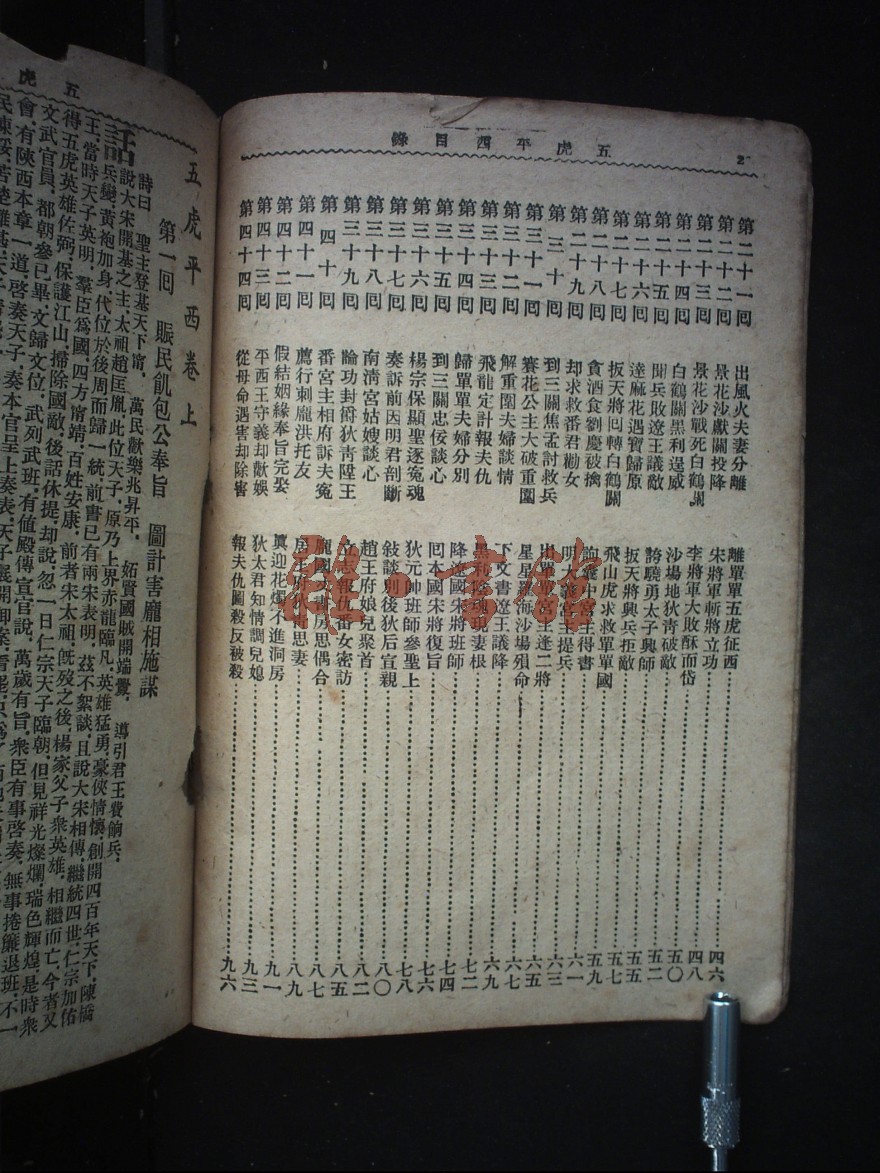 五虎平西目錄
2
第二十一回 出風火夫妻分離 離單單五虎征西 四六
第二十二回 景花沙獻關投降 宋將軍斬將立功 四八
第二十三回 景花沙戰死白鶴關 李將軍大敗酥而岱 五〇
第二十四回 白鶴關黑利逞威 沙場地狄靑破敵 五二
第二十五回 聞兵敗遼王議敵 誇驍勇太子興師 五五
第二十六回 達麻花遇寶歸原 扳天將興兵拒敵 五七
第二十七回 扳天將囘轉白鶴關 飛山虎求救單單國 五九
第二十八回 貪酒食劉慶被擒 詢囊中宮主得書 六一
第二十九回 却求救番君勸女 明大義宮主提兵 六三
第三十回 到三關焦孟討救兵 出單單宮主逢二將 六五
第三十一回 賽花公主大破重圍 星星羅海沙場殞命 六七
第三十二回 解重圍夫婦談情 下文書遼王議降 六九
第三十三回 飛龍定計報夫仇 黑利陰魂現妻根 七二
第三十四回 歸單單夫婦分別 降遼國宋將班師 七四
第三十五回 到三關忠佞談心 囘本國宋將復旨 七六
第三十六回 楊宗保顯聖逐冤魂 狄元帥班師參聖上 七八
第三十七回 奏訴前因明君剖斷 敍談別後狄后宣親 八〇
第三十八回 南淸宮姑嫂談心 趙王府娘兒聚首 八二
第三十九回 論功封爵狄靑陞王 立志報仇番女密訪 八五
第四十回 番宮主相府訴夫寃 龐國丈書房思偶合 八七
第四十一回 薦行刺龐洪托友 居王府狄靑思妻 八九
第四十二回 假結姻緣奉旨完娶 眞迎花燭不進洞房 九一
第四十三回 平西王守義却歡娛 狄太君知情調兒媳 九三
第四十四回 從母命遇害却除害 報夫仇圖殺反被殺 九六
五虎
五虎平西卷上
第一回 賑民飢包公奉旨 圖計害龐相施謀
詩曰 聖主登基天下甯，萬民歡樂兆昇平，妬賢國賊開端釁，導引君王費餉兵，
話說大宋開基之主，太祖趙匡胤，此位天子，原乃上界赤龍臨凡，英雄猛勇，豪俠情懷，創開四百年天下，陳橋
兵變，黃袍加身，代位於後周而歸一統，前書已有兩宋表明，茲不絮談，且說大宋相傳，繼統四世，仁宗加佑
王，當時天子英明，羣臣爲國，四方甯靖，百姓安康，前者宋太祖，旣歿之後，楊家父子衆英雄，相繼而亡，今者又
得五虎英雄佐弼，保護江山，掃除國敵，後話休提，却說，忽一日仁宗天子臨朝，但見祥光燦爛，瑞色輝煌，是時衆
文武官員，都朝參已畢，文歸文位，武列武班，有値殿傳宣官說，萬歲有旨，衆臣有事啓奏，無事捲簾退班，不一
會，有陝西本章一道，啓奏天子，奏本官呈上奏表，天子展開御案